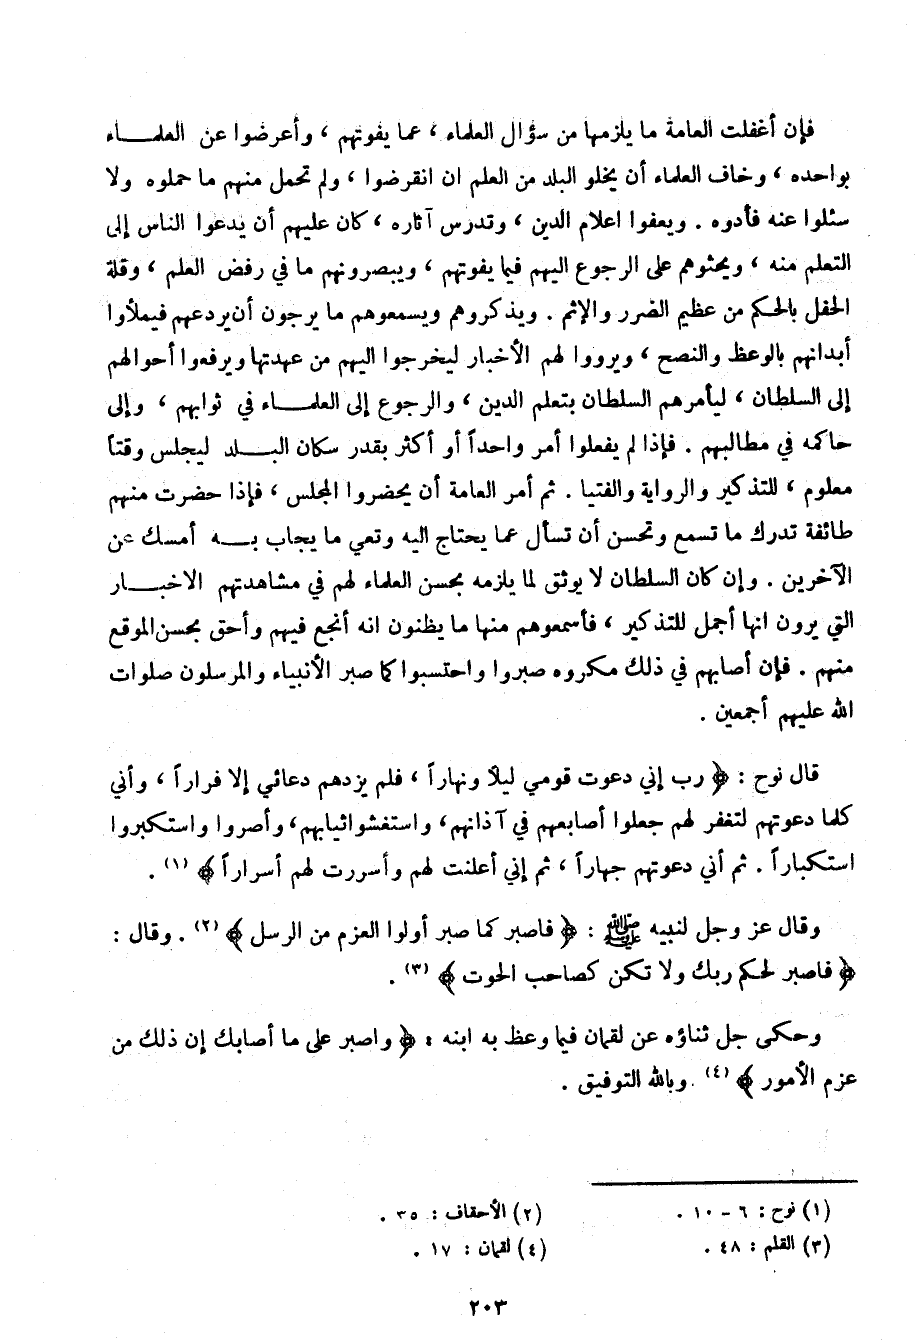 فإن أغفلت العامة ما يلزمها من سؤال العلماء ، عما يفوتهم ، وأعرضوا عن العلمـــاء
بواحده ، وخاف العلماء أن يخلو البلد من العلم ان انقرضوا ، ولم تحمل منهم ما حملوه ولا
سئلوا عنه فأدوه . ويعفوا اعلام الدين ، وتدرس آثاره ، كان عليهم أن يدعوا الناس إلى
التعلم منه ، ويحثوهم على الرجوع اليهم فيما يفوتهم ، ويبصرونهم ما في رفض العلم ، وقلة
الحفل بالحكم من عظيم الضرر والإثم . ويذكروهم ويسمعوهم ما يرجون أن يردعهم فيملأوا
أبدانهم بالوعظ والنصح ، ويرووا لهم الأخبار ليخرجوا اليهم من عهدتها ويرفعوا أحوالهم
إلى السلطان ، ليأمرهم السلطان بتعلم الدين ، والرجوع إلى العلمـــاء في ثوابهم ، وإلى
حاكمه في مطالبهم . فإذا لم يفعلوا أمر واحداً أو أكثر بقدر سكان البـــلد ليجلس وقتاً
معلوم ، للتذكير والرواية والفتيا . ثم أمر العامة أن يحضروا المجلس ، فإذا حضرت منهم
طائفة تدرك ما تسمع وتحسن أن تسأل عما يحتاج اليه وتعي ما يجاب بـــه أمسك عن
الآخرين . وإن كان السلطان لا يوثق لما يلزمه بحسن العلماء لهم في مشاهدتهم الاخبـــار
التي يرون انها أجمل للتذكير ، فأسمعوهم منها ما يظنون انه أنجع فيهم وأحق بحسن الموقع
منهم . فإن أصابهم في ذلك مكروه صبروا واحتسبوا كما صبر الأنبياء والمرسلون صلوات
الله عليهم أجمعين .
قال نوح : ﴿ رب إني دعوت قومي ليلاً ونهاراً ، فلم يزدهم دعائي إلا فراراً ، وأني
كلما دعوتهم لتغفر لهم جعلوا أصابعهم في آذانهم، واستغشوا ثيابهم، وأصروا واستكبروا
استكباراً . ثم أني دعوتهم جهاراً ، ثم إني أعلنت لهم وأسررت لهم أسراراً ﴾ (١) .
وقال عز وجل لنبيه ﷺ : ﴿ فاصبر كما صبر أولوا العزم من الرسل ﴾ (٢) . وقال :
﴿ فاصبر لحكم ربك ولا تكن كصاحب الحوت ﴾ (٣) .
وحكى جل ثناؤه عن لقمان فيما وعظ به ابنه : ﴿ واصبر على ما أصابك إن ذلك من
عزم الأمور ﴾ (٤) وبالله التوفيق .
(١) نوح : ٦ – ١٠ .
(٢) الأحقاف : ٣٥ .
(٣) القلم : ٤٨ .
(٤) لقمان : ١٧ .
٢٠٣